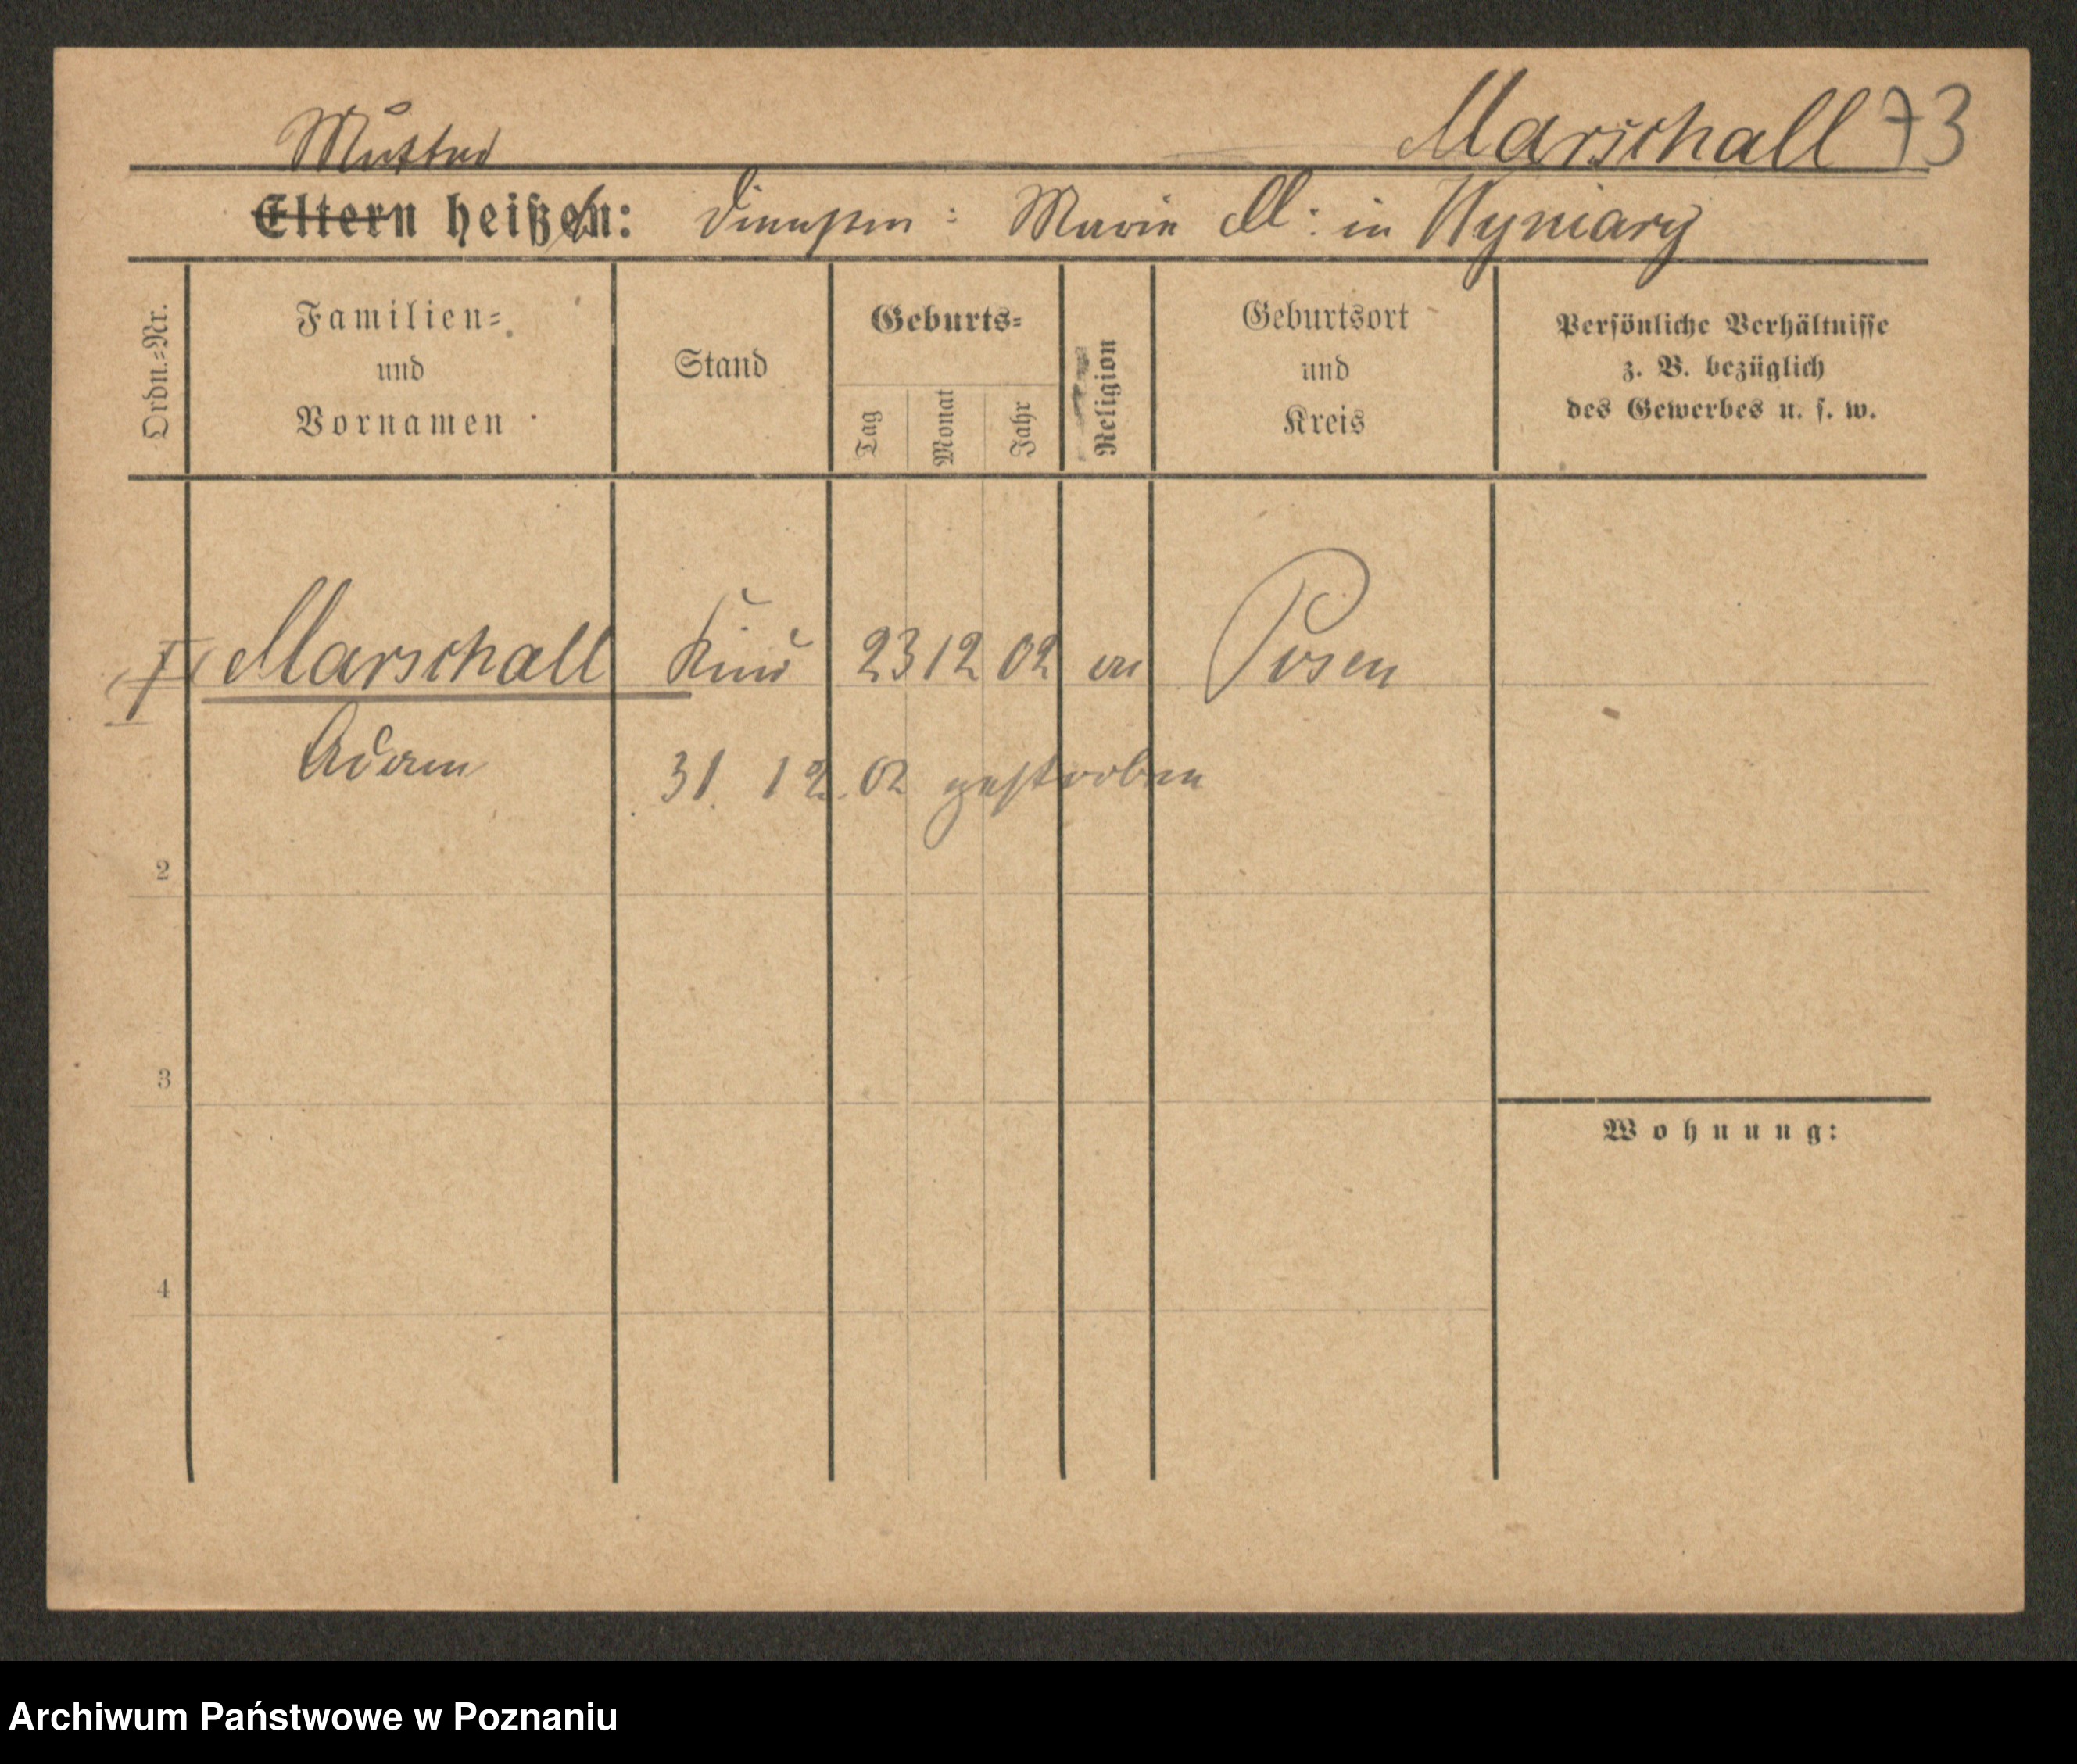 Marschall 73
Mutter
Eltern heißen: Dienstm: Marie M: in Wyniary
Ordn.-Nr.
Familien-
und
Vornamen
Stand
Geburts-
Tag
Monat
Jahr
Religion
Geburtsort
und
Kreis
Persönliche Verhältnisse
z. B. bezüglich
des Gewerbes u. s. w.
Marschall Kind 23 12 02 Posen
Adam 31. 12. 02 gestorben
2
3
Wohnung:
4
Archiwum Państwowe w Poznaniu